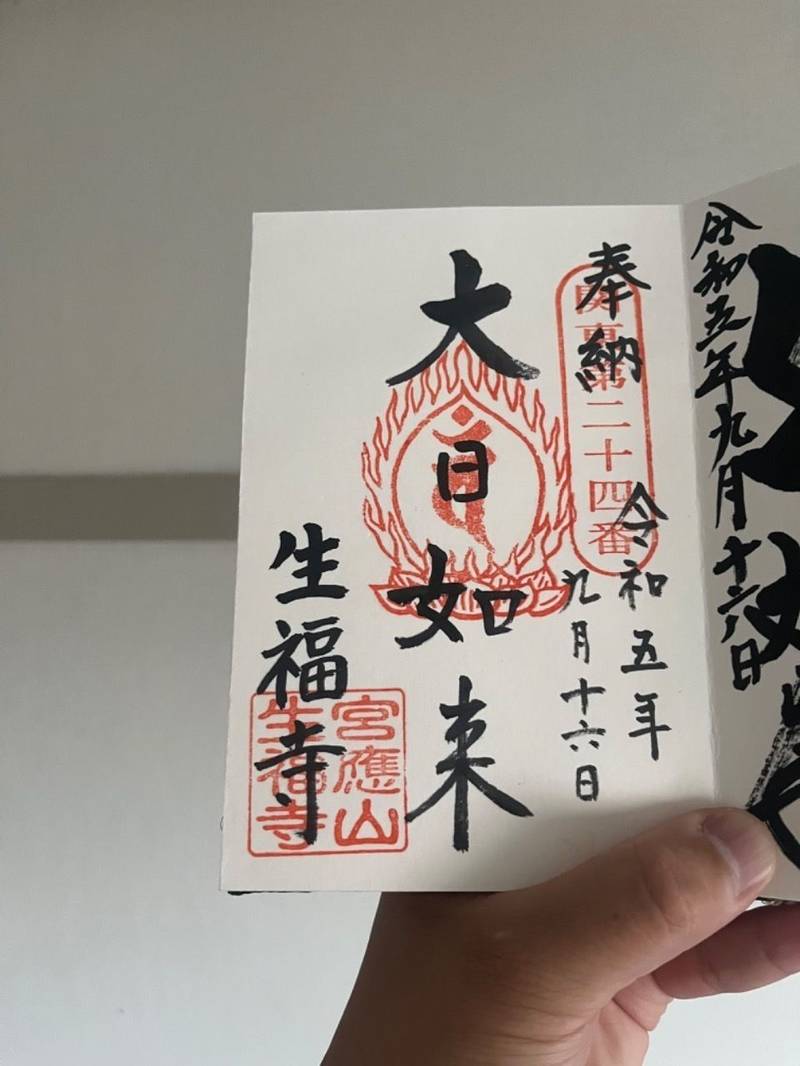 令和五年九月十六日
奉納
関東第二十四番
令和五年
九月十六日
大日如来
生福寺
宮應山
生福寺